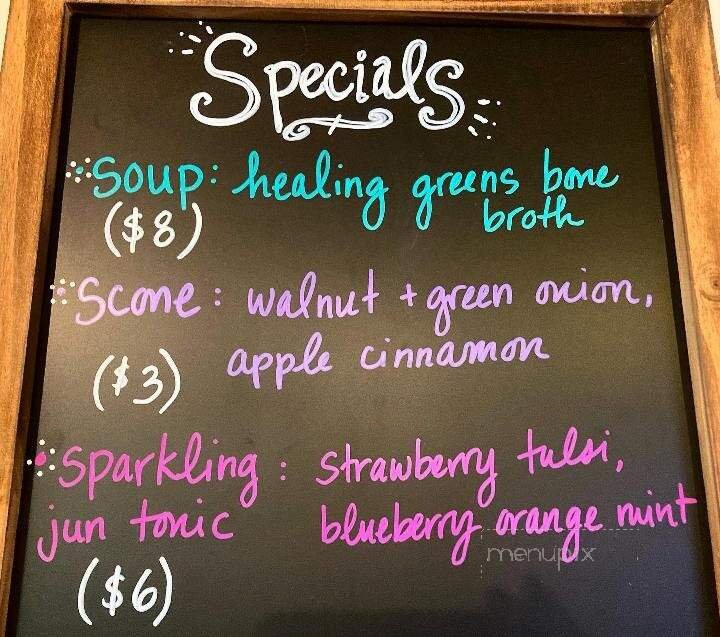 Specials
Soup: healing greens bone
($8) broth
Scone: walnut + green onion,
($3) apple cinnamon
Sparkling: strawberry tulsi,
jun tonic blueberry orange mint
($6)
menupix